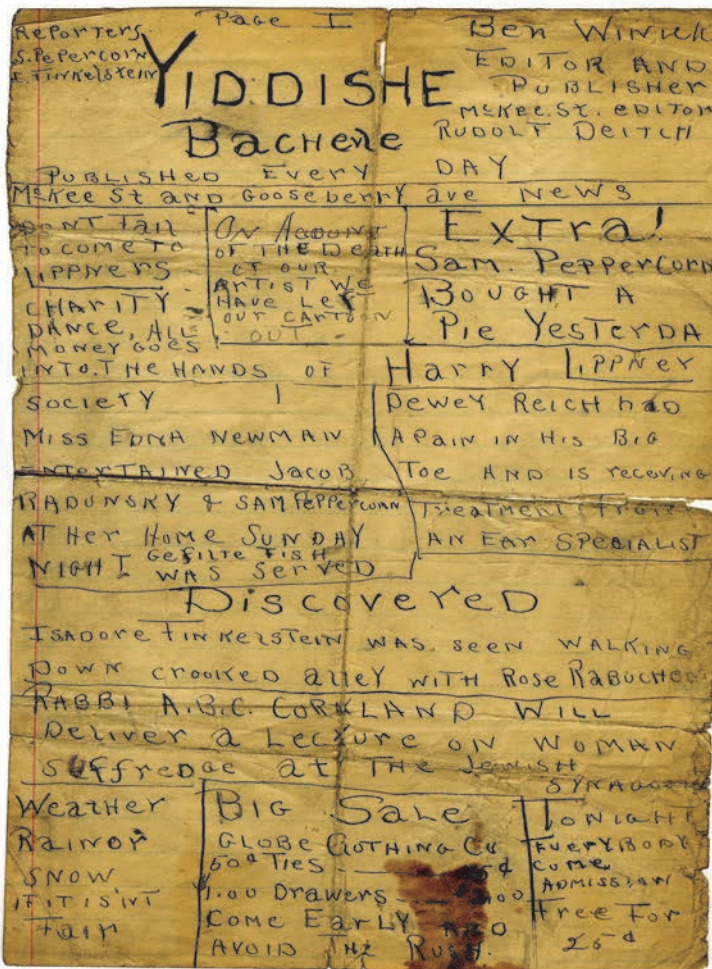 Page I
Reporters
S. Pepercorn
I. Finkelstein
Ben Winick
Editor and
Publisher
McKee. St. editor
Rudolf Deitch
YIDDISHE
Bachere
Published Every Day
McKee St and Gooseberry ave News
Dont Fail
to come to
Lippners
Charity
Dance, All
Money goes
into. the hands of Harry Lippner
On Account
of the Death
of our
artist we
have Lef
our cartoon
out
Extra!
Sam. Peppercorn
Bought a
Pie Yesterda
Society
Miss Edna Newman
entertained Jacob
Radunsky & Sam Peppercorn
at Her Home Sunday
Gefilte Fish
Night was served
Dewey Reich had
a pain in His Big
Toe and is receving
Treatment from
an Ear Specialist
Discovered
Isadore Finkelstein was seen walking
Down crooked alley with Rose
Rabbi A.B.C. Corkland will
Deliver a Lecture on woman
Suffredge at The Jewish
Synagogue
Weather
Rain or
snow
if it isint
Fair
Big Sale
Globe Clothing Co
50¢ Ties
1.00 Drawers
Come Early and
avoid The Rush.
Tonight
Everybody
come
Admission
Free For
25¢